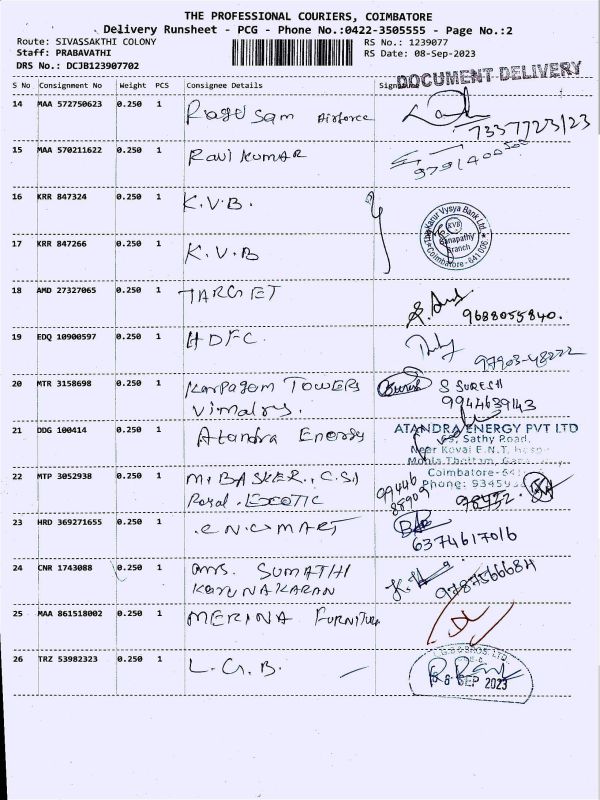 THE PROFESSIONAL COURIERS, COIMBATORE
Delivery Runsheet - PCG - Phone No.:0422-3505555 - Page No.:2
Route: SIVASSAKTHI COLONY RS No.: 1239077
Staff: PRABAVATHI RS Date: 08-Sep-2023
DRS No.: DCJB123907702
DOCUMENT DELIVERY
S No Consignment No Weight PCS Consignee Details Signature
14 MAA 572750623 0.250 1 Ragu Sam Airforce
7337723123
15 MAA 570211622 0.250 1 Ravi KUMAR
16 KRR 847324 0.250 1 K.V.B.
The Karur Vysya Bank Ltd.
KVB
Ganapathy
Branch
Coimbatore - 641 006
17 KRR 847266 0.250 1 K.V.B
18 AMD 27327065 0.250 1 TARGET
9688055840.
19 EDQ 10900597 0.250 1 HDFC.
97903-48222
20 MTR 3158698 0.250 1 Karpagam TOWERS S SURESH
Vimalrs. 9944639143
21 DDG 100414 0.250 1 Atandra Energy
ATANDRA ENERGY PVT LTD
Sathy Road,
Near Kovai E.N.T.
Coimbatore-
Phone: 9345
22 MTP 3052938 0.250 1 M. BASKER., C.S,
Royal. EXOTIC 99446
88909
23 HRD 369271655 0.250 1 .C.N.C MART
6374617016
24 CNR 1743088 0.250 1 Mrs. SUMATHI
KARUNAKARAN
25 MAA 861518002 0.250 1 MERINA FURNITURE
26 TRZ 53982323 0.250 1 L.G.B.
L.G.B & BROS. LTD.
08 SEP 2023